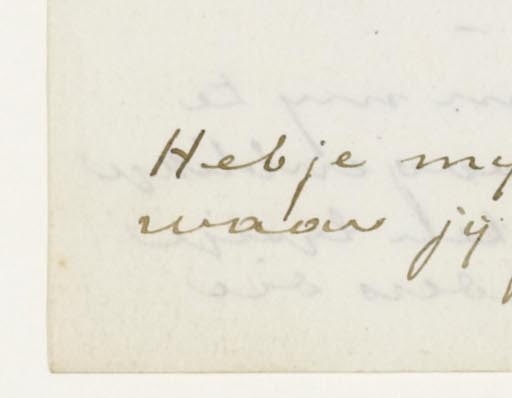 Heb je my
waar jij